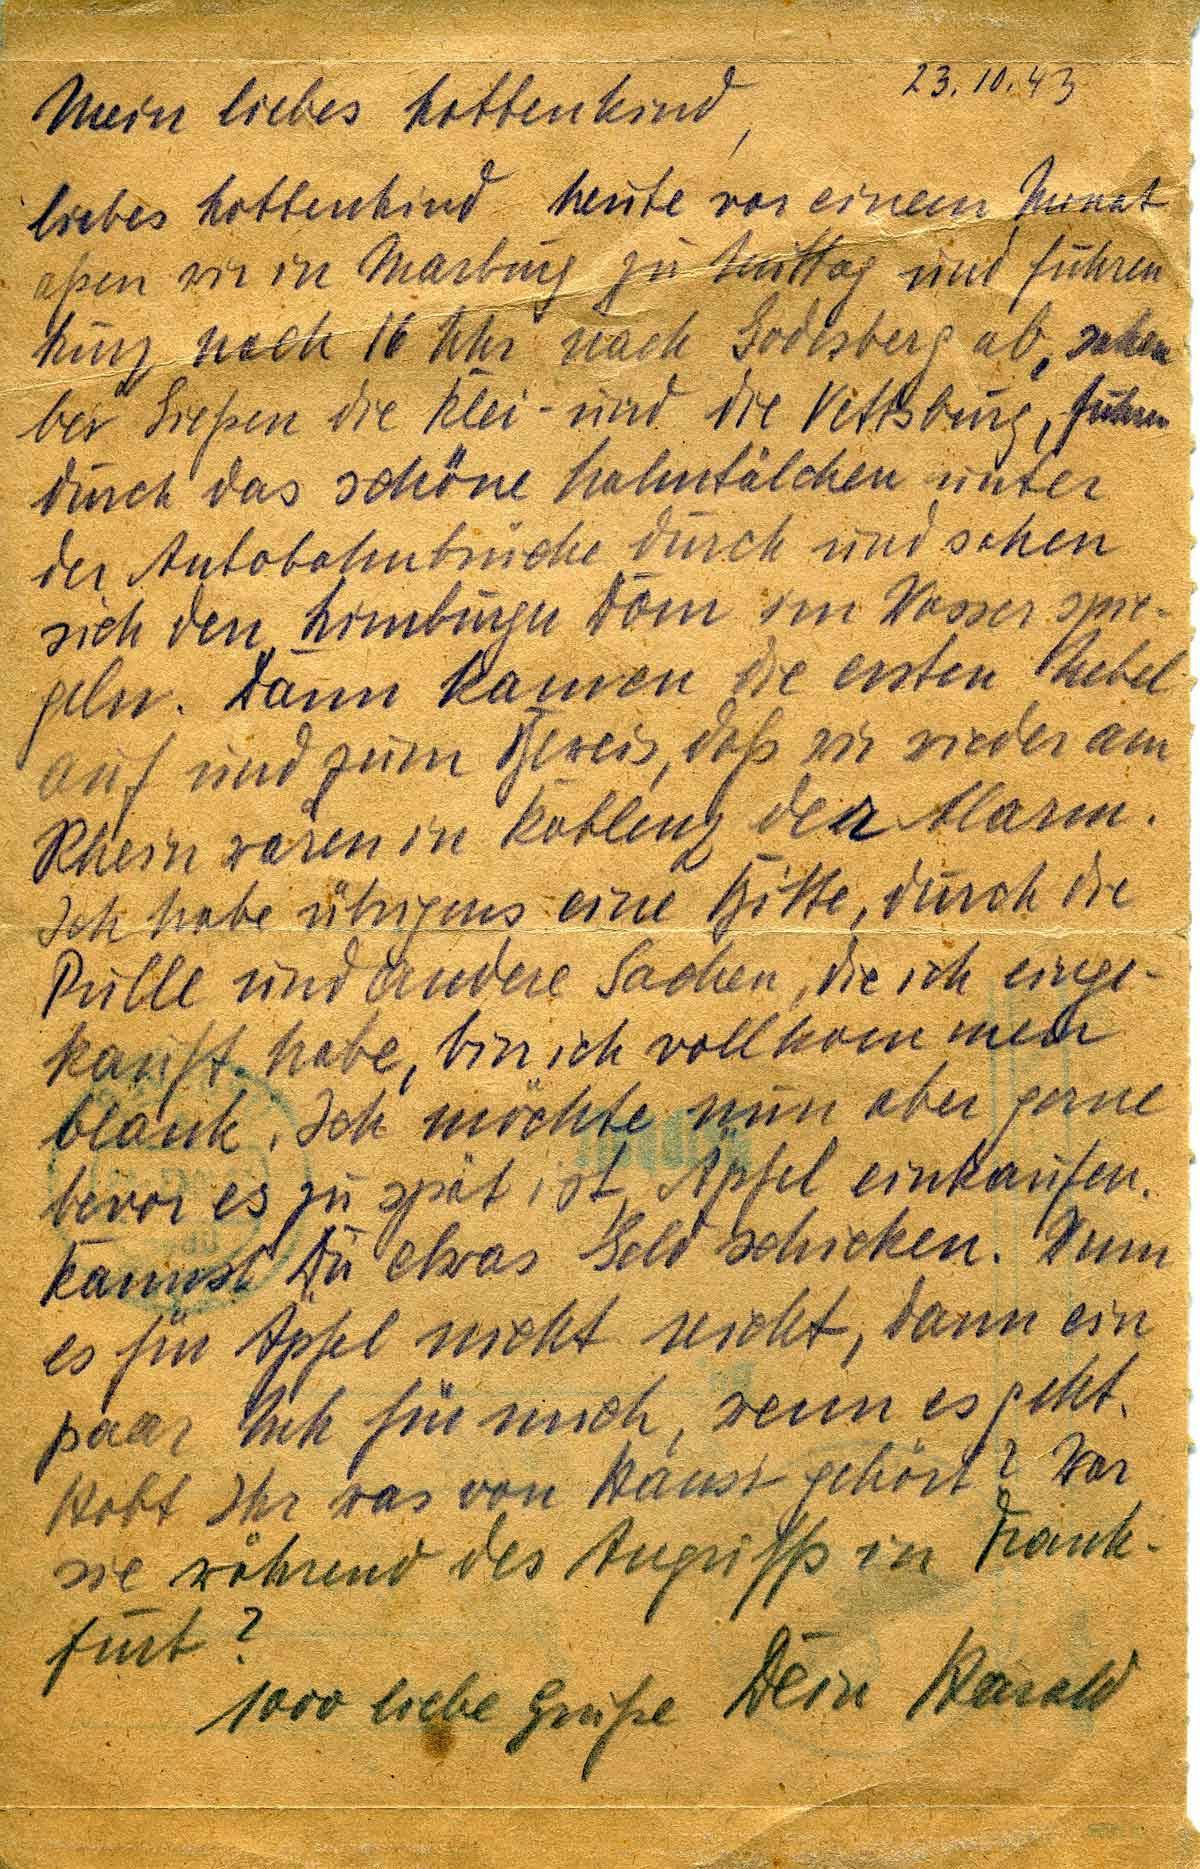 23.10.43
Mein liebes Lottenkind,
liebes Lottenkind heute vor einem Monat
aßen wir in Marburg zu Mittag und fuhren
kurz nach 16 Uhr nach Godesberg ab, sahen
bei Gießen die Klei- und die Vettsburg, fuhren
durch das schöne Lahntälchen unter
der Autobahnbrücke durch und sahen
sich den Limburger Dom im Wasser spie-
geln. Dann kamen die ersten Nebel
auf und zum Beweis, daß wir wieder am
Rhein waren in Koblenz der Alarm.
Ich habe übrigens eine Bitte, durch die
Pulle und andere Sachen, die ich einge-
kauft habe, bin ich vollkommen
blank. Ich möchte nun aber gerne
bevor es zu spät ist, Äpfel einkaufen.
Kannst Du etwas Geld schicken. Wenn
es für Äpfel nicht reicht, dann ein
paar Mk für mich, wenn es geht.
Habt Ihr was von gehört? War
sie während des Angriffs in Frank-
furt?
1000 liebe Grüße Dein Harald